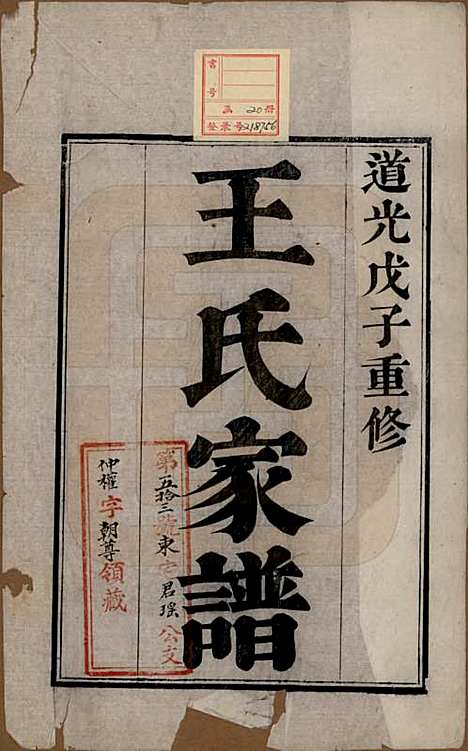 書號
函 20冊
登录号218756
道光戊子重修
王氏家譜
第五拾三號東宅君瑶公支
仲權字朝尊領藏